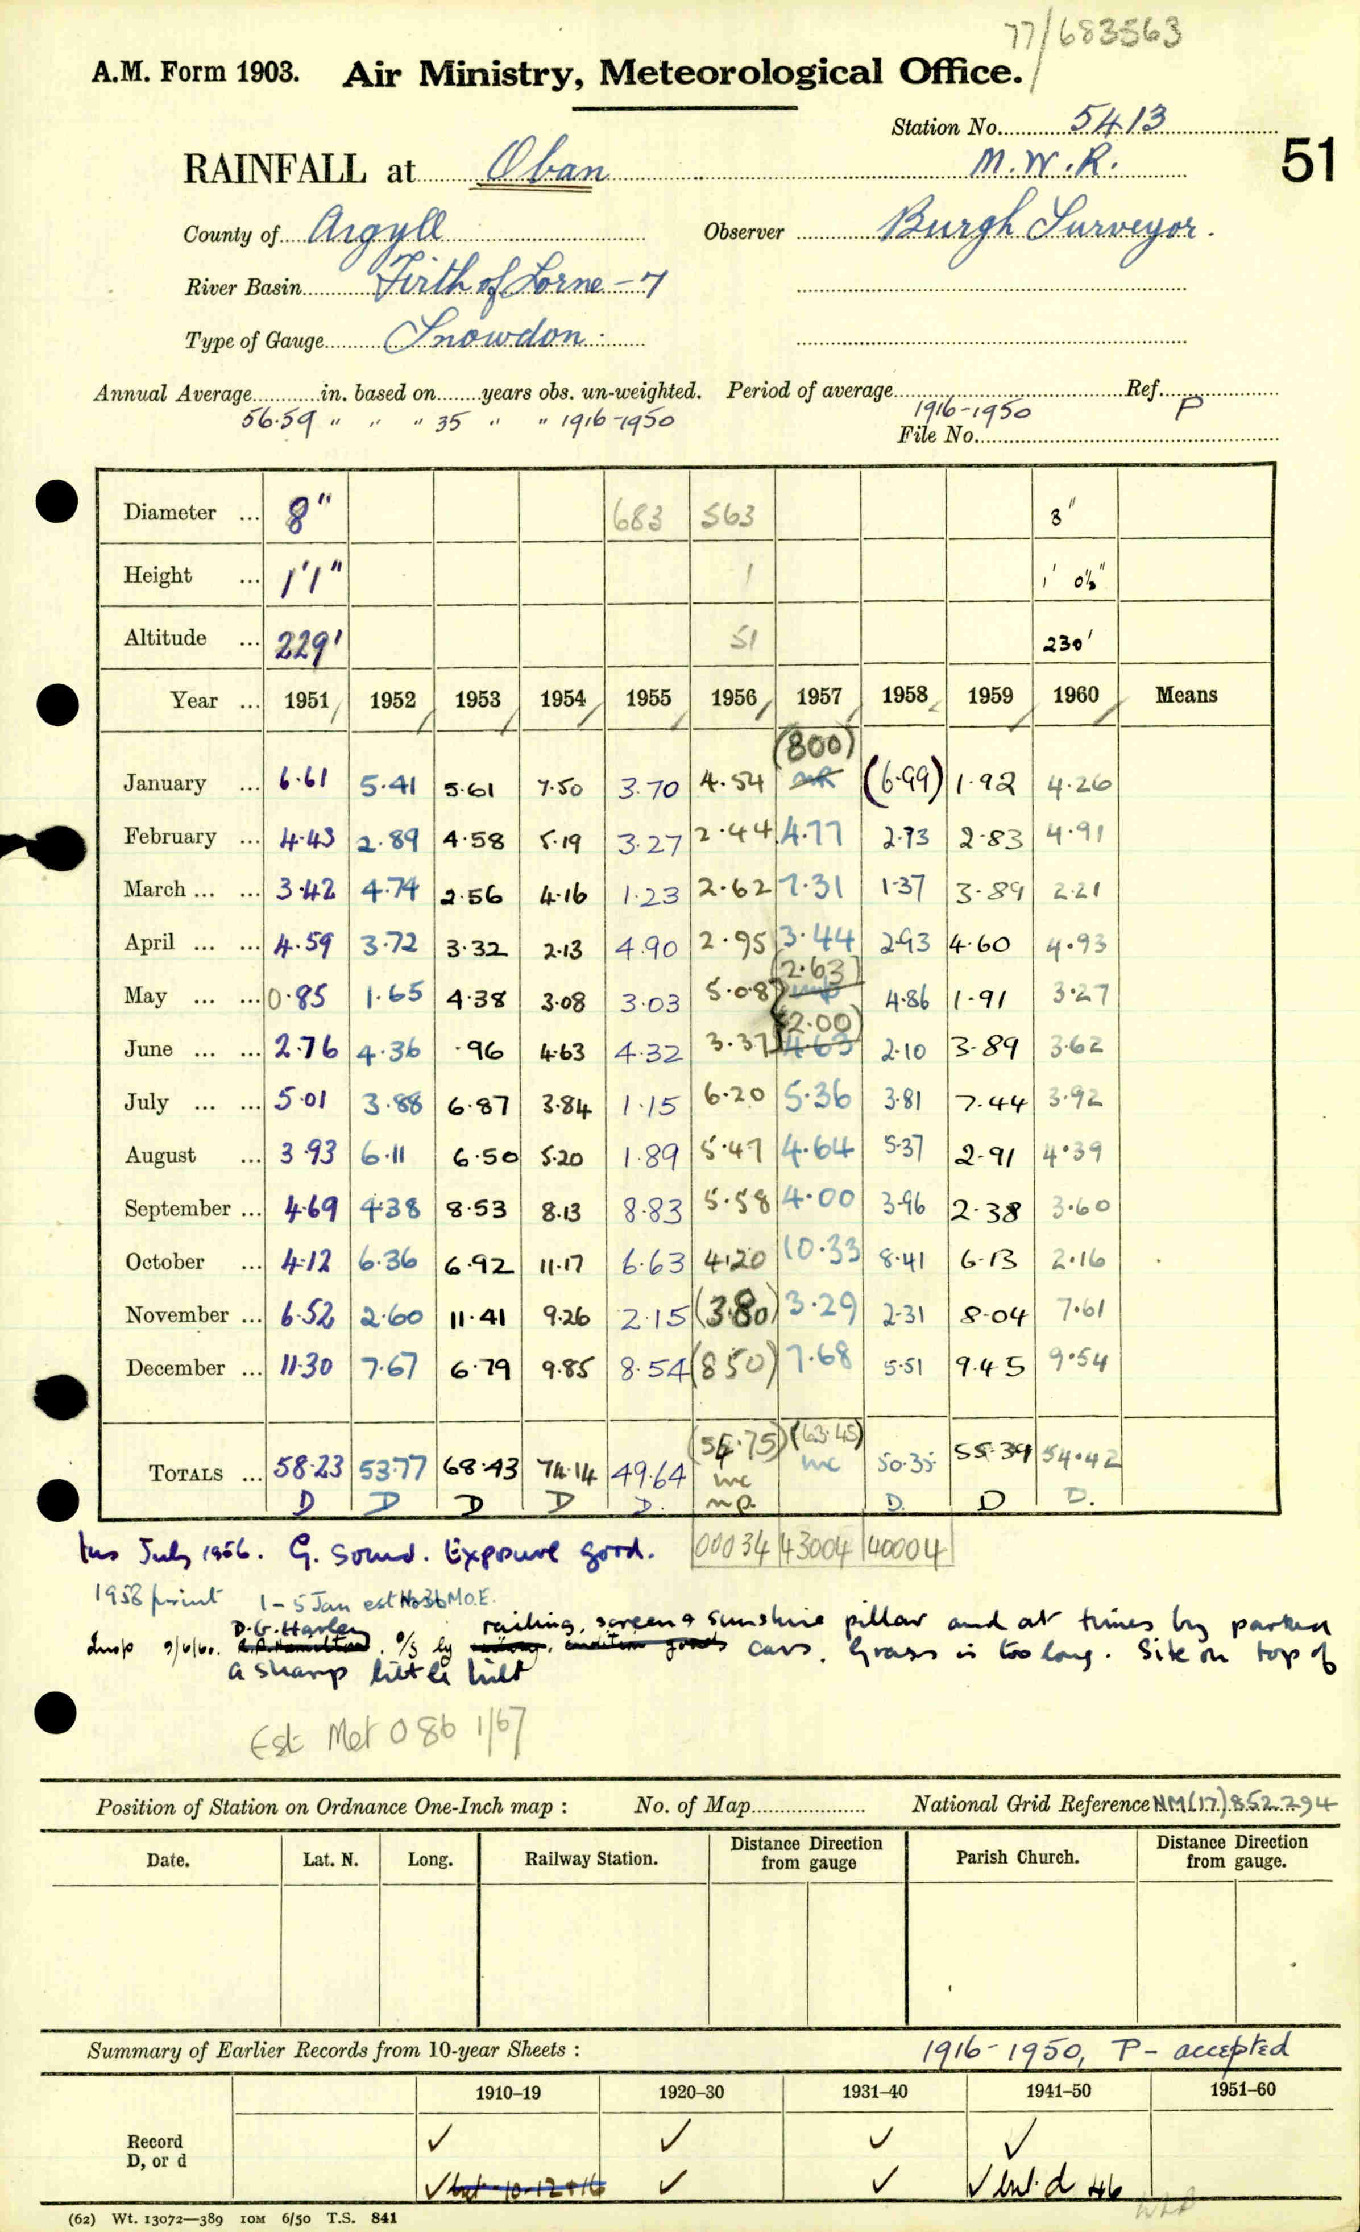 77/683563
A.M. Form 1903. Air Ministry, Meteorological Office.
Station No. 5413
RAINFALL at Oban M.W.R. 51
County of Argyll Observer Burgh Surveyor.
River Basin Firth of Lorne - 7
Type of Gauge Snowdon
Annual Average in. based on years obs. un-weighted. Period of average Ref.
56.59 " " " 35 " " 1916-1950 1916-1950 P
File No.
Diameter ... 8" 683 563 8"
Height ... 1'1" 1 1' 0½"
Altitude ... 229' 51 230'
Year ... 1951 1952 1953 1954 1955 1956 1957 1958 1959 1960 Means
(800)
January ... 6.61 5.41 5.61 7.50 3.70 4.54 (6.99) 1.92 4.26
February ... 4.43 2.89 4.58 5.19 3.27 2.44 4.77 2.73 2.83 4.91
March ... ... 3.42 4.74 2.56 4.16 1.23 2.62 7.31 1.37 3.89 2.21
April ... ... 4.59 3.72 3.32 2.13 4.90 2.95 3.44 2.93 4.60 4.93
(2.63)
May ... ... 0.85 1.65 4.38 3.08 3.03 5.08 mp 4.86 1.91 3.27
(2.00)
June ... ... 2.76 4.36 .96 4.63 4.32 3.37 4.63 2.10 3.89 3.62
July ... ... 5.01 3.88 6.87 3.84 1.15 6.20 5.36 3.81 7.44 3.92
August ... 3.93 6.11 6.50 5.20 1.89 5.47 4.64 5.37 2.91 4.39
September ... 4.69 4.38 8.53 8.13 8.83 5.58 4.00 3.96 2.38 3.60
October ... 4.12 6.36 6.92 11.17 6.63 4.20 10.33 8.41 6.13 2.16
November ... 6.52 2.60 11.41 9.26 2.15 (3.80) 3.29 2.31 8.04 7.61
December ... 11.30 7.67 6.79 9.85 8.54 (850) 7.68 5.51 9.45 9.54
TOTALS ... 58.23 53.77 68.43 74.14 49.64 (54.75) (63.45) 50.35 55.39 54.42
inc inc
D D D D D. mp. D. D D.
00034 43004 40004
Ins July 1956. G. Sound. Exposure good.
1958 print 1-5 Jan est No3b M.O.E.
D.G. Harley railing, screen & sunshine pillar and at times by parked
insp 9/6/60. o/s by cars. Grass is too long. Site on top of
a sharp little hill
Est Met O 8b 1/67
Position of Station on Ordnance One-Inch map : No. of Map National Grid Reference NM(17)852294
Date. Lat. N. Long. Railway Station. Distance from gauge Direction Parish Church. Distance from gauge. Direction
Summary of Earlier Records from 10-year Sheets : 1916-1950, P- accepted
1910–19 1920–30 1931–40 1941–50 1951–60
Record ✓ ✓ ✓ ✓
D, or d ✓ but 10-12+16 ✓ ✓ ✓ but d 46
(62) Wt. 13072—389 10M 6/50 T.S. 841